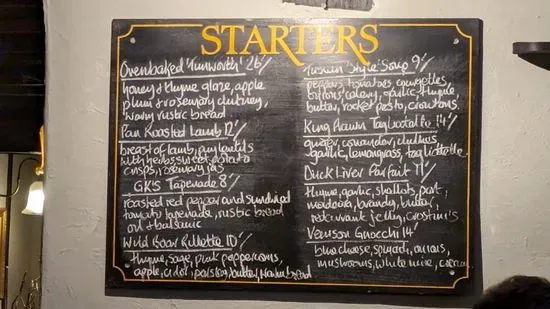 STARTERS
Ovenbaked 'Tunworth' 26/
honey & thyme glaze, apple
plum & rosemary chutney,
warm rustic bread
Pan Roasted Lamb 12/
breast of lamb, puy lentils
with herbs, sweet potato
crisps, rosemary jus
GK'S Tapenade 8/
roasted red pepper and sundried
tomato tapenade, rustic bread
oil & balsamic
Wild Boar Rillette 10/
thyme, sage, pink peppercorns,
apple, cider, parsley, butter, warm bread
Tuscan 'Style' Soup 9/
peppers, tomatoes, courgettes,
onions, celery, garlic, thyme
butter, rocket pesto, croutons.
King Prawn Tagliatelle 14/
ginger, coriander, chillies
garlic, lemongrass, tagliatelle
Duck Liver Parfait 11/
thyme, garlic, shallots, port,
madeira, brandy, butter,
redcurrant jelly, crostini's
Venison Gnocchi 14/
blue cheese, spinach, onions,
mushrooms, white wine, cream